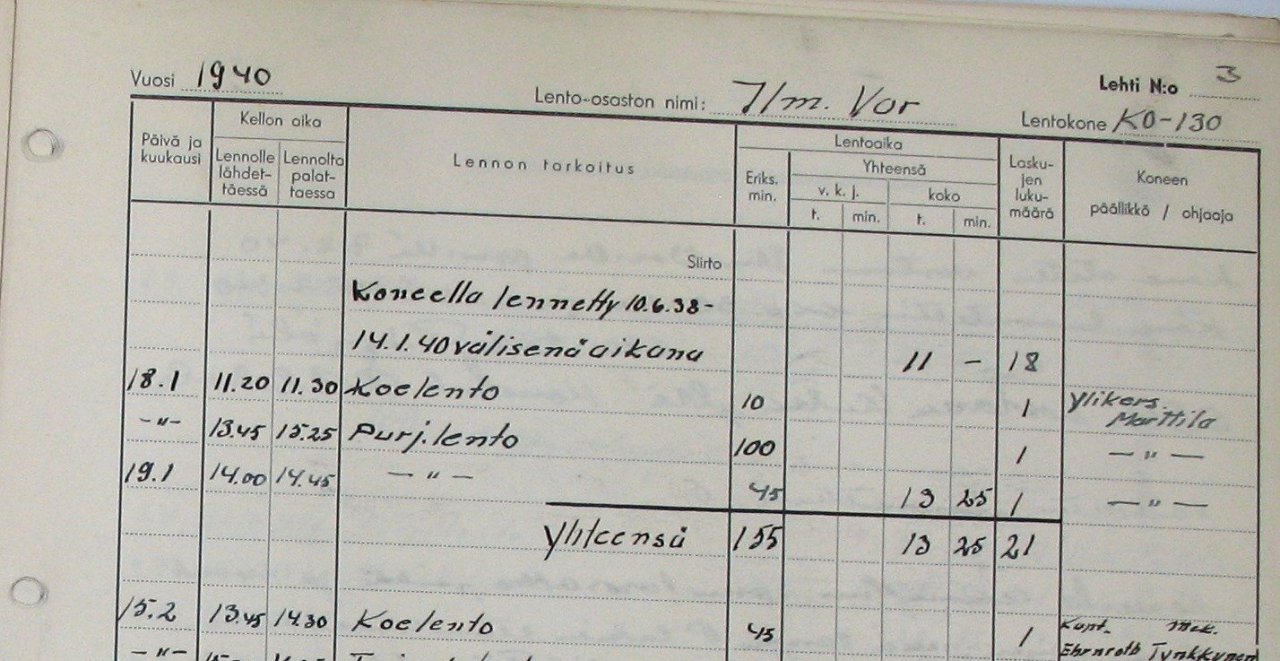 Vuosi 1940 Lento-osaston nimi: 7/m. Vor Lehti N:o 3
Lentokone KO-130
Päivä ja kuukausi Kellon aika Lennon tarkoitus Lentoaika Lasku-jen luku-määrä Koneen päällikkö / ohjaaja
Lennolle lähdet-täessä Lennolta palat-taessa Eriks. min. Yhteensä
v. k. j. koko
t. min. t. min.
Siirto
Koneella lennetty 10.6.38-
14.1.40 välisenä aikana 11 - 18
18.1 11.20 11.30 Koelento 10 1 Ylikers. Marttila
-"- 13.45 15.25 Purj.lento 100 1 -"-
19.1 14.00 14.45 -"- 45 13 25 1 -"-
Yhteensä 155 13 25 21
15.2 13.45 14.30 Koelento 45 1 Kapt. Mek.
Ehrnroth Tynkkynen
-"-